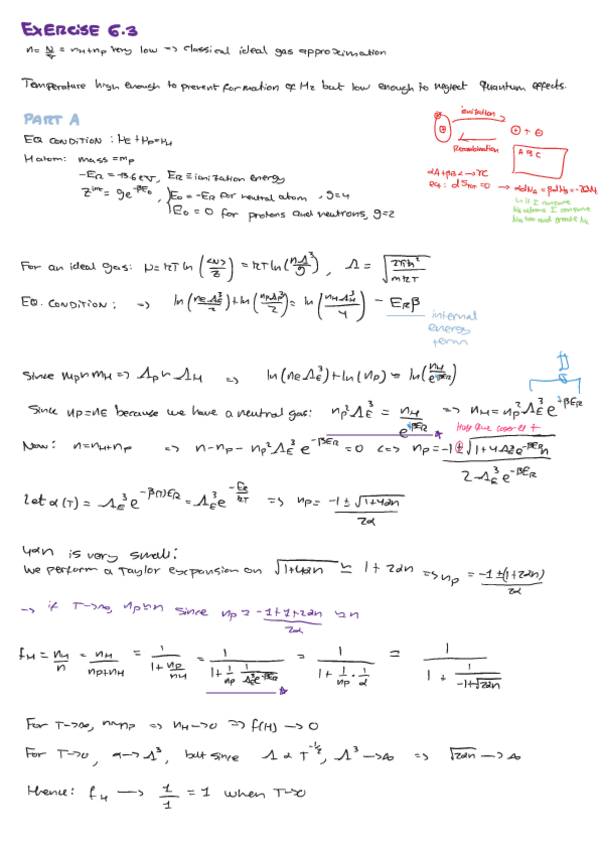 EXERCISE 6.3
n = N/V = nH + np very low -> classical ideal gas approximation
Temperature high enough to prevent formation of H2 but low enough to neglect quantum effects.
PART A
EQ CONDITION : μE + μp = μH
H atom: mass = mp
-ER = -13.6 eV, ER ≡ ionization energy
Z^int = g e^-βE0, { E0 = -ER for neutral atom, g=4
E0 = 0 for protons and neutrons, g=2
ionization
⊕ + ⊖
Recombination
A B C
αA + βB <-> γC
eq: dS_TOT = 0 ->
For an ideal gas: μ = kT ln(<N>/Z) = kT ln(nΛ^3/g), Λ = √(2πħ^2/mkT)
EQ. CONDITION: => ln(nEΛE^3/2) + ln(npΛp^3/2) = ln(nHΛH^3/4) - ERβ
internal
energy
term
Since mp~mH => Λp ~ ΛH => ln(nEΛE^3) + ln(np) = ln(nH/e^βER)
Since np = nE because we have a neutral gas: np^2 ΛE^3 = nH/e^+βER => nH = np^2 ΛE^3 e^+βER
Now: n = nH + np => n - np - np^2 ΛE^3 e^-βER = 0 <=> np = (-1 ± √(1 + 4ΛE^3 e^-βER n)) / (2ΛE^3 e^-βER)
Let α(T) = ΛE^3 e^-β(T)ER = ΛE^3 e^-ER/kT => np = (-1 ± √(1+4αn))/2α
4αn is very small:
We perform a Taylor expansion on √(1+4αn) ≃ 1 + 2αn => np = (-1 ± (1+2αn))/2α
-> if T->∞, np≃n since np = (-1+1+2αn)/2α ≃ n
fH = nH/n = nH/(np+nH) = 1/(1 + np/nH) = 1/(1 + 1/np · 1/(ΛE^3 e^-βER)) = 1/(1 + 1/np · 1/α) = 1/(1 + 1/(-1+√2αn))
For T->∞, n~np => nH->0 => f(H) -> 0
For T->0, α->Λ^3, but since Λ ∝ T^-1/2, Λ^3 -> ∞ => √2αn -> ∞
Hence: fH -> 1/1 = 1 when T->0